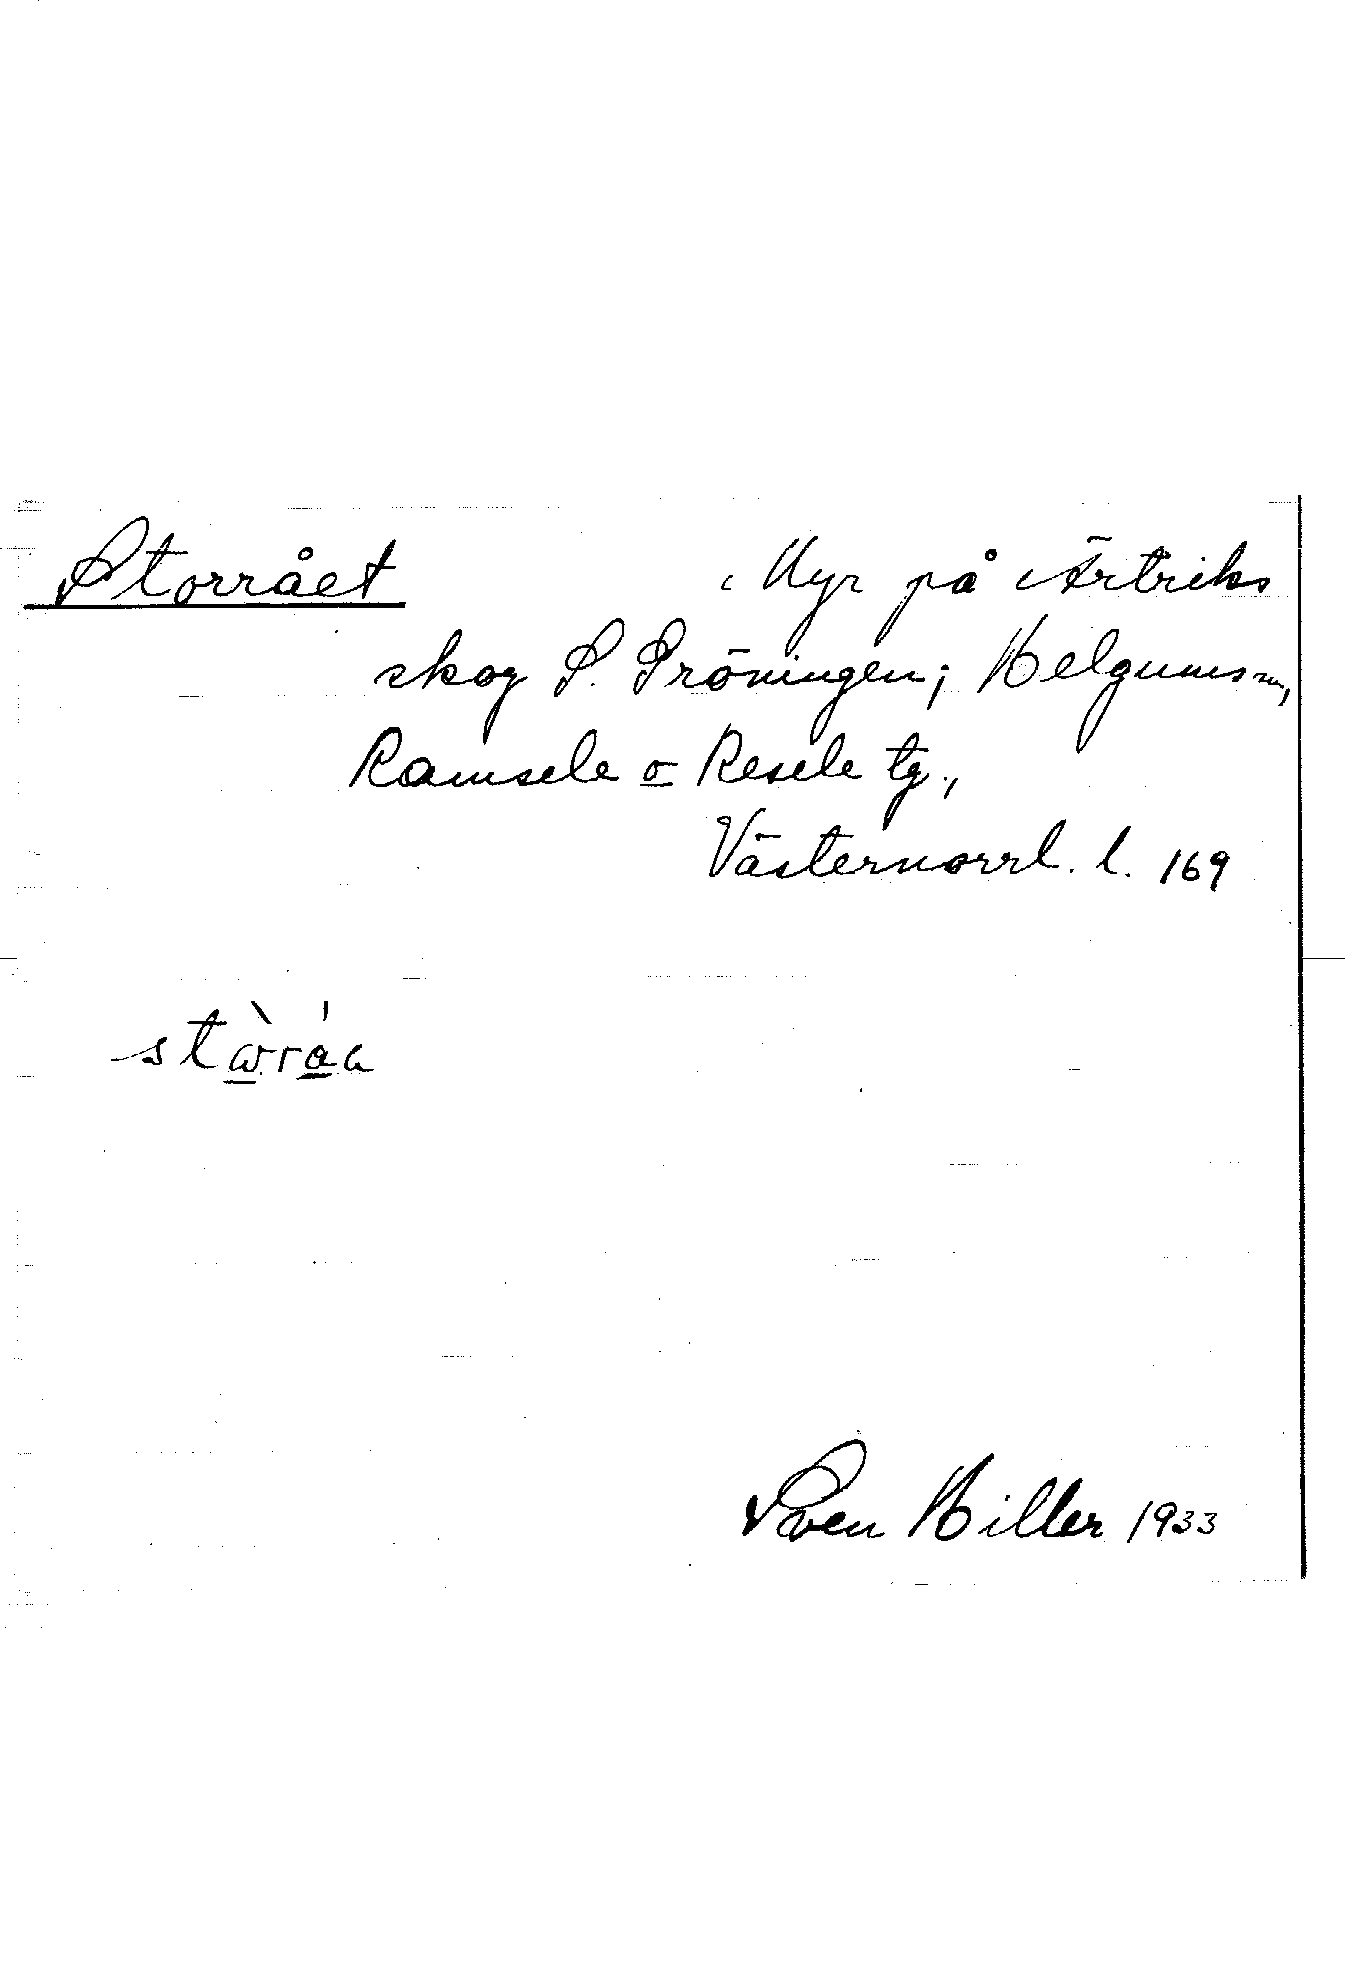 Storrået Myr på Ärtriks
skog S. Gröningen; Helgums sn,
Ramsele o Resele tg.,
Västernorrl. l. 169
Sven Hiller 1933